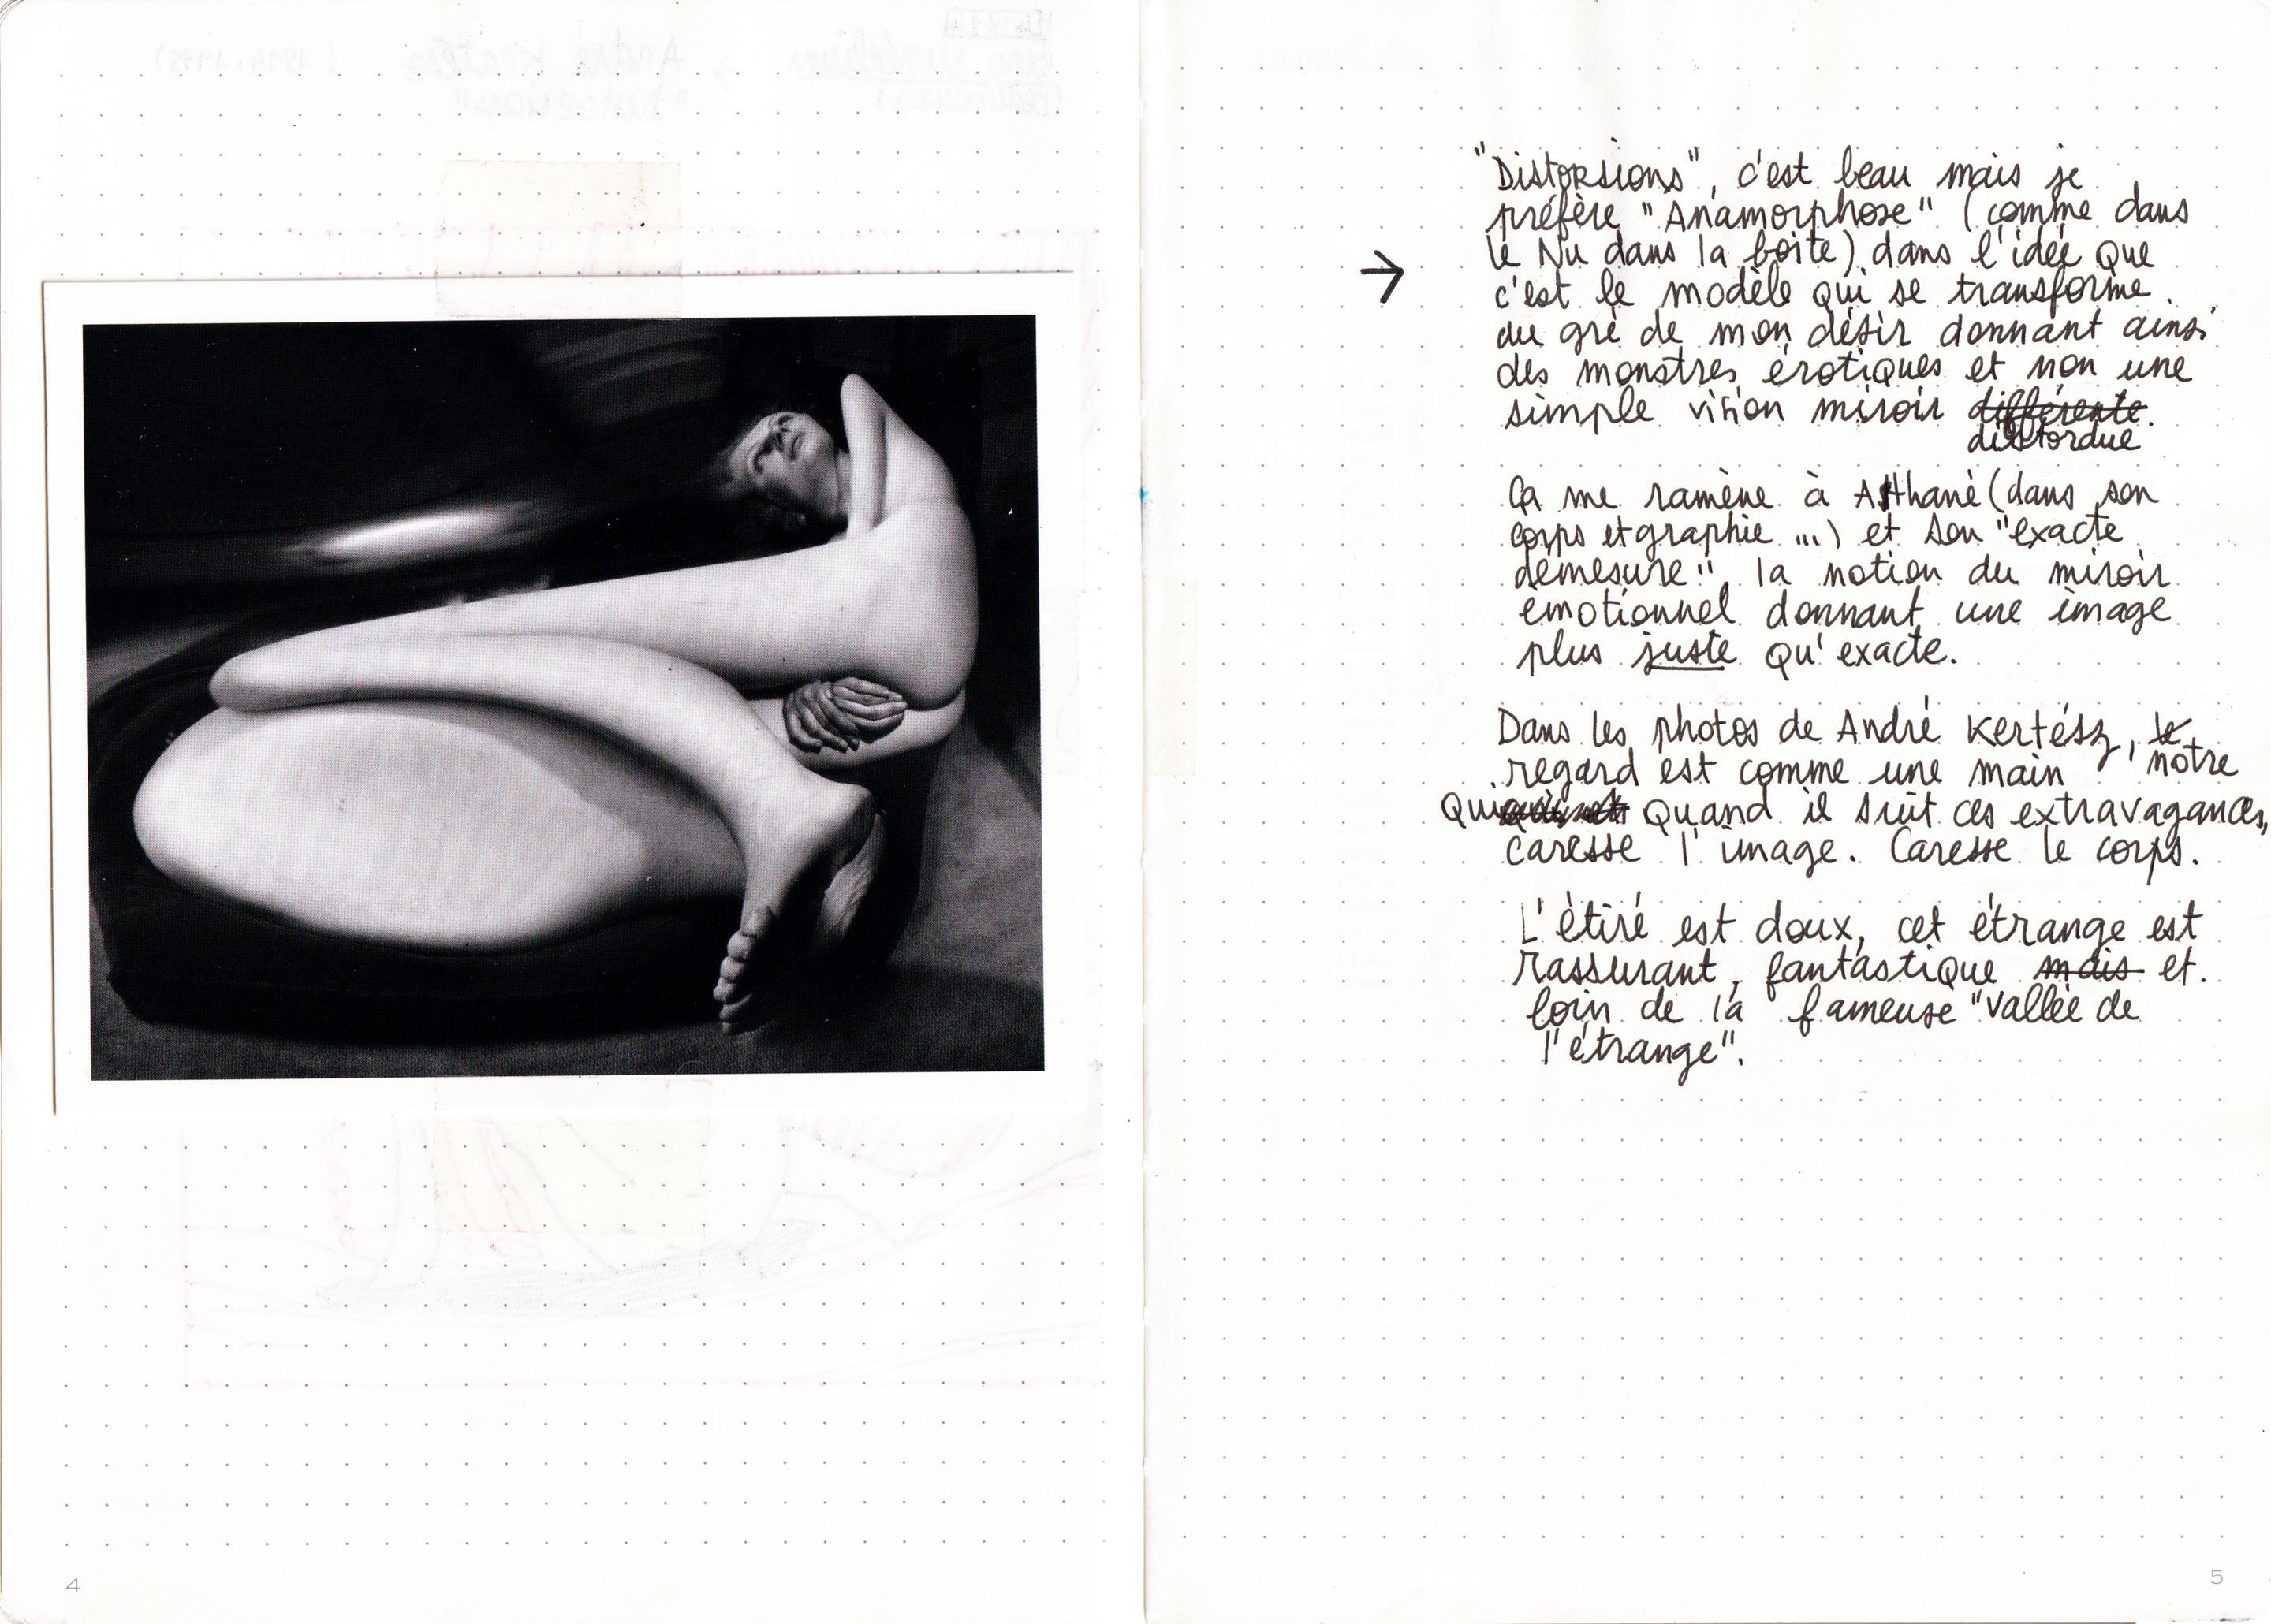 "Distorsions", c'est beau mais je
préfère "Anamorphose" (comme dans
le Nu dans la boite) dans l'idée que
→ c'est le modèle qui se transforme
au gré de mon désir donnant ainsi
des monstres érotiques et non une
simple vision miroir différente.
distordue
Ça me ramène à (dans son
corps et graphie ...) et son "exacte
démesure", la notion du miroir
émotionnel donnant une image
plus juste qu'exacte.
Dans les photos de André Kertész, le
notre
regard est comme une main
Qui quand il suit ces extravagances,
caresse l'image. Caresse le corps.
L'étiré est doux, cet étrange est
rassurant, fantastique mais et
loin de la fameuse "vallée de
l'étrange".
4
5